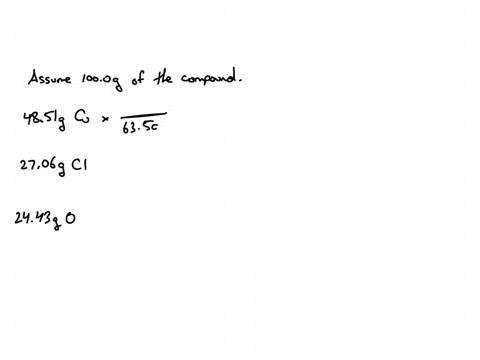 Assume 100.0g of the compound.
48.51g Cu × 63.5
27.06g Cl
24.43g O